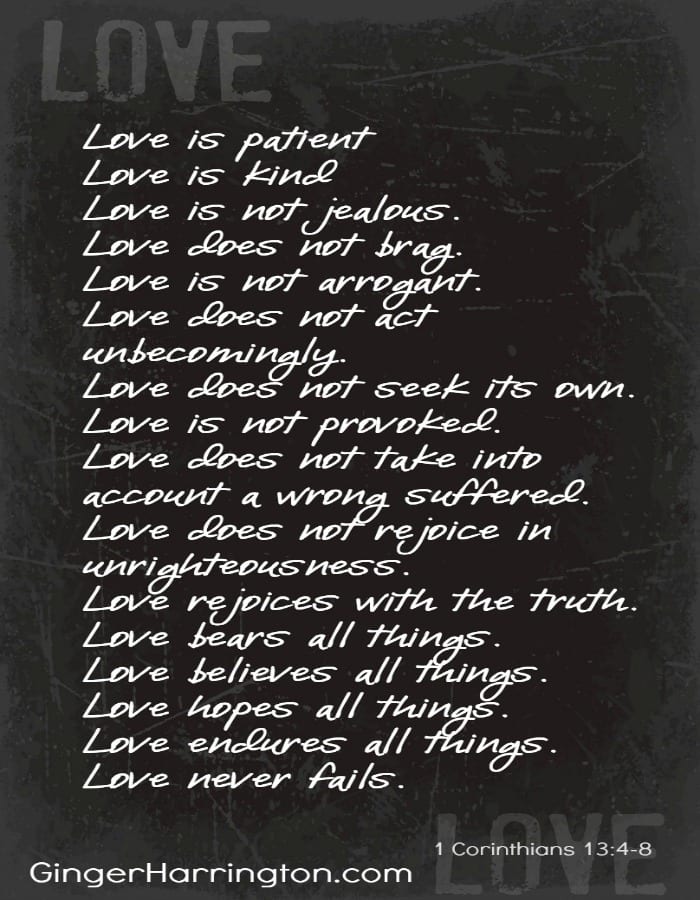 LOVE
Love is patient
Love is kind
Love is not jealous.
Love does not brag.
Love is not arrogant.
Love does not act
unbecomingly.
Love does not seek its own.
Love is not provoked.
Love does not take into
account a wrong suffered.
Love does not rejoice in
unrighteousness.
Love rejoices with the truth.
Love bears all things.
Love believes all things.
Love hopes all things.
Love endures all things.
Love never fails.
LOVE
1 Corinthians 13:4-8
GingerHarrington.com